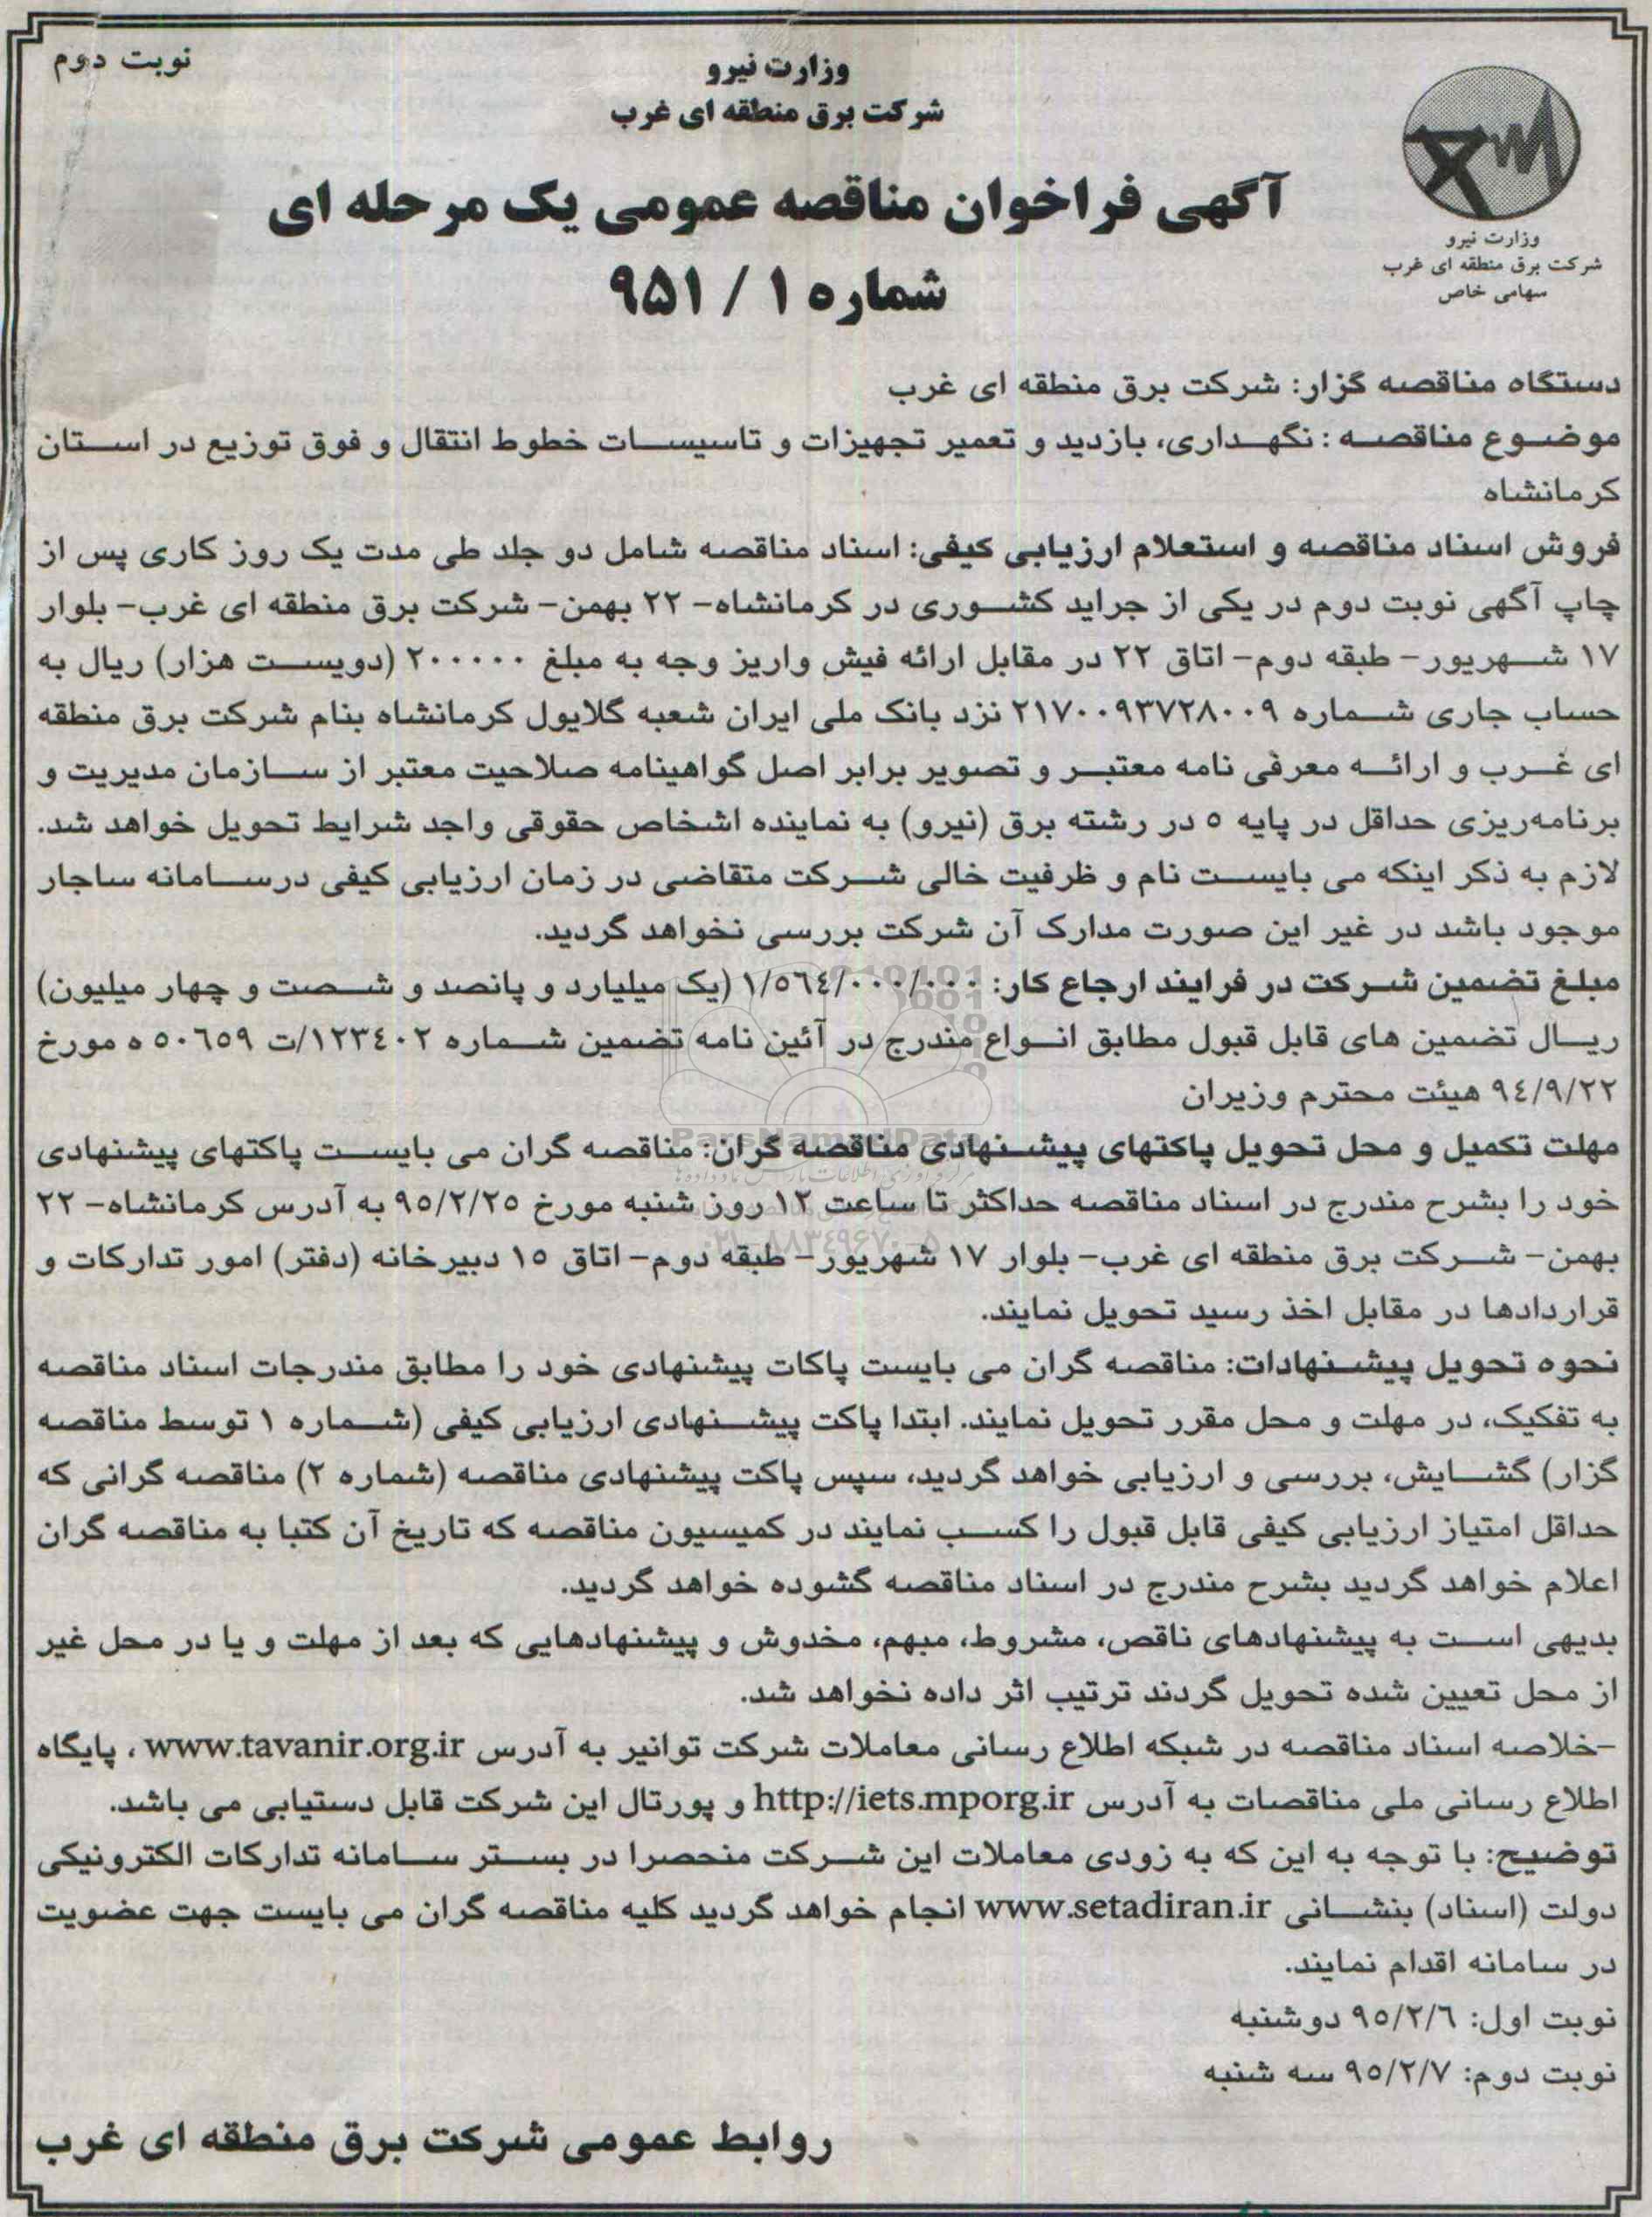 نوبت دوم
وزارت نیرو
شرکت برق منطقه ای غرب
آگهی فراخوان مناقصه عمومی یک مرحله ای
شماره ۱ / ۹۵۱
وزارت نیرو
شرکت برق منطقه ای غرب
سهامی خاص
دستگاه مناقصه گزار: شرکت برق منطقه ای غرب
موضوع مناقصه : نگهداری، بازدید و تعمیر تجهیزات و تاسیسات خطوط انتقال و فوق توزیع در استان
کرمانشاه
فروش اسناد مناقصه و استعلام ارزیابی کیفی: اسناد مناقصه شامل دو جلد طی مدت یک روز کاری پس از
چاپ آگهی نوبت دوم در یکی از جراید کشوری در کرمانشاه- ۲۲ بهمن- شرکت برق منطقه ای غرب- بلوار
۱۷ شهریور- طبقه دوم- اتاق ۲۲ در مقابل ارائه فیش واریز وجه به مبلغ ۲۰۰۰۰۰ (دویست هزار) ریال به
حساب جاری شماره ۲۱۷۰۰۹۳۷۲۸۰۰۹ نزد بانک ملی ایران شعبه گلایول کرمانشاه بنام شرکت برق منطقه
ای غرب و ارائه معرفی نامه معتبر و تصویر برابر اصل گواهینامه صلاحیت معتبر از سازمان مدیریت و
برنامه‌ریزی حداقل در پایه ۵ در رشته برق (نیرو) به نماینده اشخاص حقوقی واجد شرایط تحویل خواهد شد.
لازم به ذکر اینکه می بایست نام و ظرفیت خالی شرکت متقاضی در زمان ارزیابی کیفی درسامانه ساجار
موجود باشد در غیر این صورت مدارک آن شرکت بررسی نخواهد گردید.
مبلغ تضمین شرکت در فرایند ارجاع کار: ۱/۵٦٤/۰۰۰/۰۰۰ (یک میلیارد و پانصد و شصت و چهار میلیون)
ریال تضمین های قابل قبول مطابق انواع مندرج در آئین نامه تضمین شماره ۱۲۳٤۰۲/ت ۵۰٦۵۹ ه مورخ
۹٤/۹/۲۲ هیئت محترم وزیران
مهلت تکمیل و محل تحویل پاکتهای پیشنهادی مناقصه گران: مناقصه گران می بایست پاکتهای پیشنهادی
خود را بشرح مندرج در اسناد مناقصه حداکثر تا ساعت ۱۲ روز شنبه مورخ ۹۵/۲/۲۵ به آدرس کرمانشاه- ۲۲
بهمن- شرکت برق منطقه ای غرب- بلوار ۱۷ شهریور- طبقه دوم- اتاق ۱۵ دبیرخانه (دفتر) امور تدارکات و
قراردادها در مقابل اخذ رسید تحویل نمایند.
نحوه تحویل پیشنهادات: مناقصه گران می بایست پاکات پیشنهادی خود را مطابق مندرجات اسناد مناقصه
به تفکیک، در مهلت و محل مقرر تحویل نمایند. ابتدا پاکت پیشنهادی ارزیابی کیفی (شماره ۱ توسط مناقصه
گزار) گشایش، بررسی و ارزیابی خواهد گردید، سپس پاکت پیشنهادی مناقصه (شماره ۲) مناقصه گرانی که
حداقل امتیاز ارزیابی کیفی قابل قبول را کسب نمایند در کمیسیون مناقصه که تاریخ آن کتبا به مناقصه گران
اعلام خواهد گردید بشرح مندرج در اسناد مناقصه گشوده خواهد گردید.
بدیهی است به پیشنهادهای ناقص، مشروط، مبهم، مخدوش و پیشنهادهایی که بعد از مهلت و یا در محل غیر
از محل تعیین شده تحویل گردند ترتیب اثر داده نخواهد شد.
-خلاصه اسناد مناقصه در شبکه اطلاع رسانی معاملات شرکت توانیر به آدرس www.tavanir.org.ir ، پایگاه
اطلاع رسانی ملی مناقصات به آدرس http://iets.mporg.ir و پورتال این شرکت قابل دستیابی می باشد.
توضیح: با توجه به این که به زودی معاملات این شرکت منحصرا در بستر سامانه تدارکات الکترونیکی
دولت (اسناد) بنشانی www.setadiran.ir انجام خواهد گردید کلیه مناقصه گران می بایست جهت عضویت
در سامانه اقدام نمایند.
نوبت اول: ۹۵/۲/٦ دوشنبه
نوبت دوم: ۹۵/۲/۷ سه شنبه
روابط عمومی شرکت برق منطقه ای غرب
ParsNamadData
۰۲۱-۸۸۳٤۹٦۷۰-۵